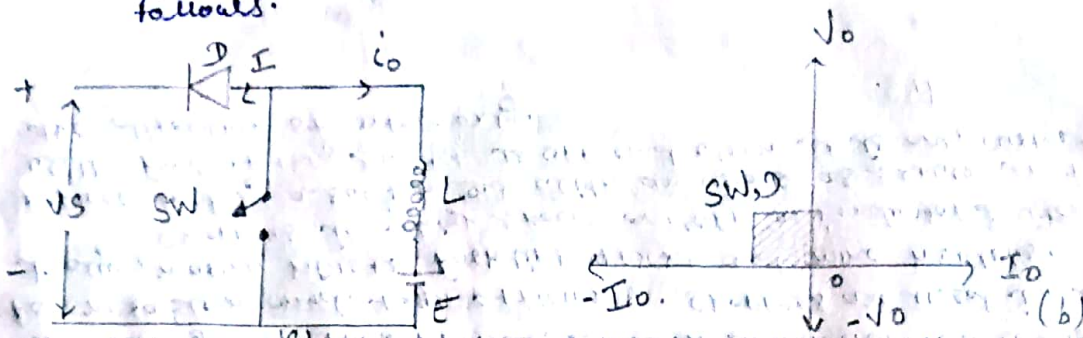 follows.
D I i₀
+
VS SW L
-
+
E
V₀
SW,D
-I₀. 0 I₀
-V₀ (b)